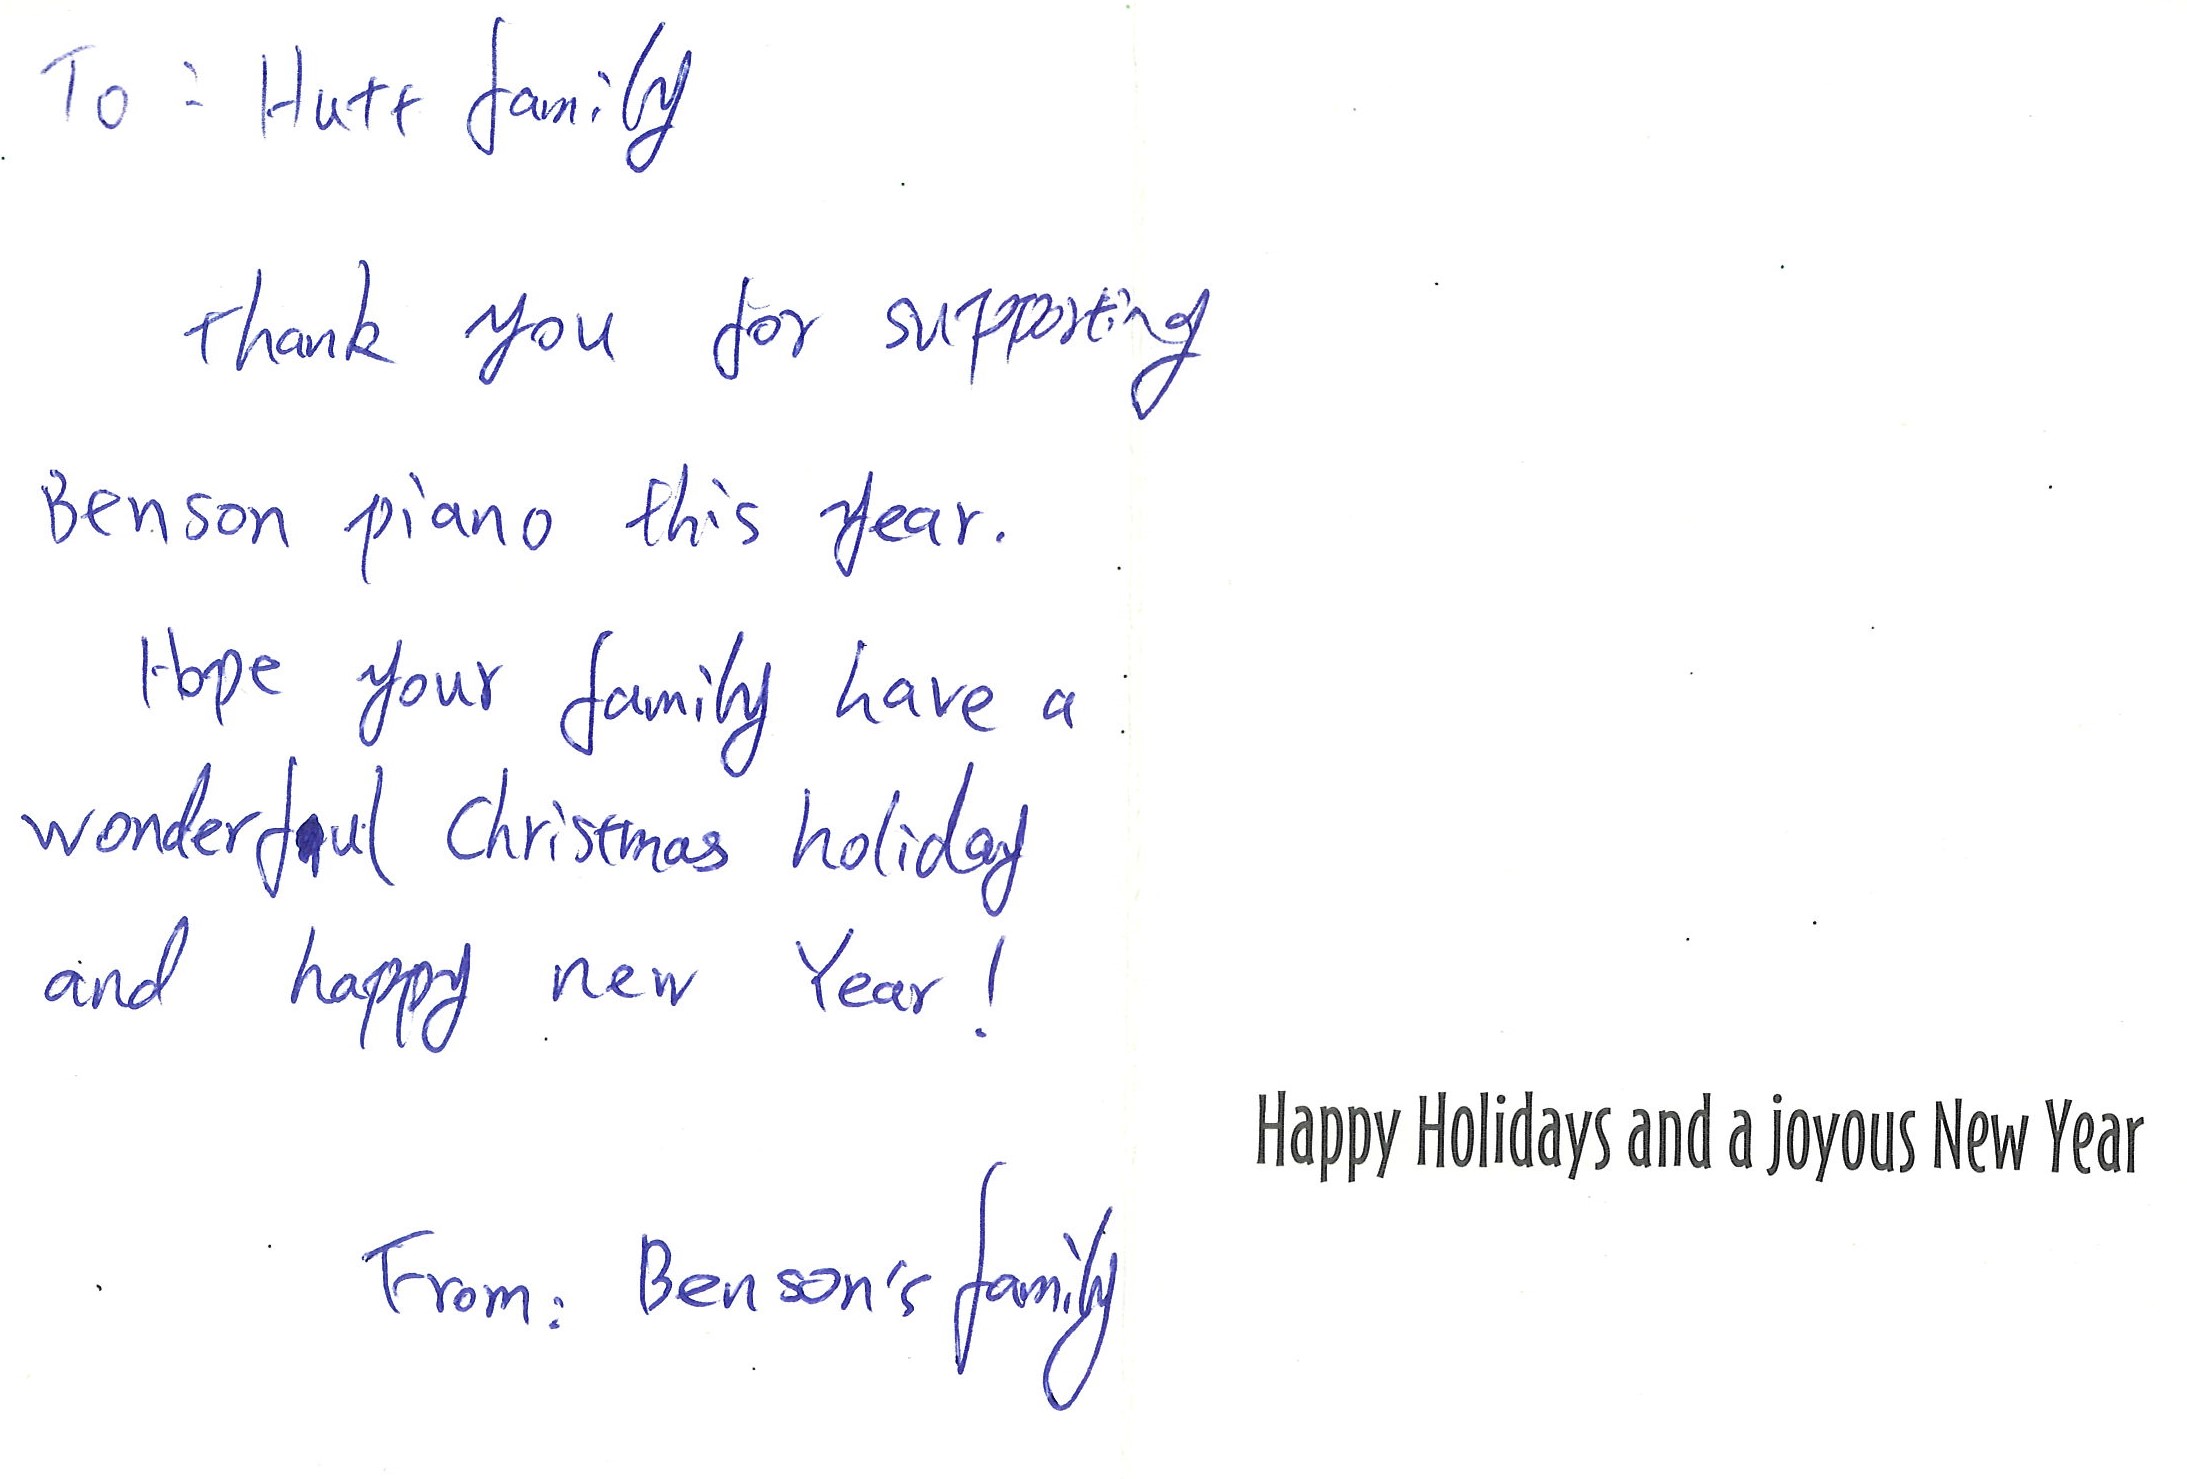 To: Hutt family
Thank you for supporting
Benson piano this year.
Hope your family have a
wonderful Christmas holiday
and happy new Year!
From: Benson's family
Happy Holidays and a joyous New Year